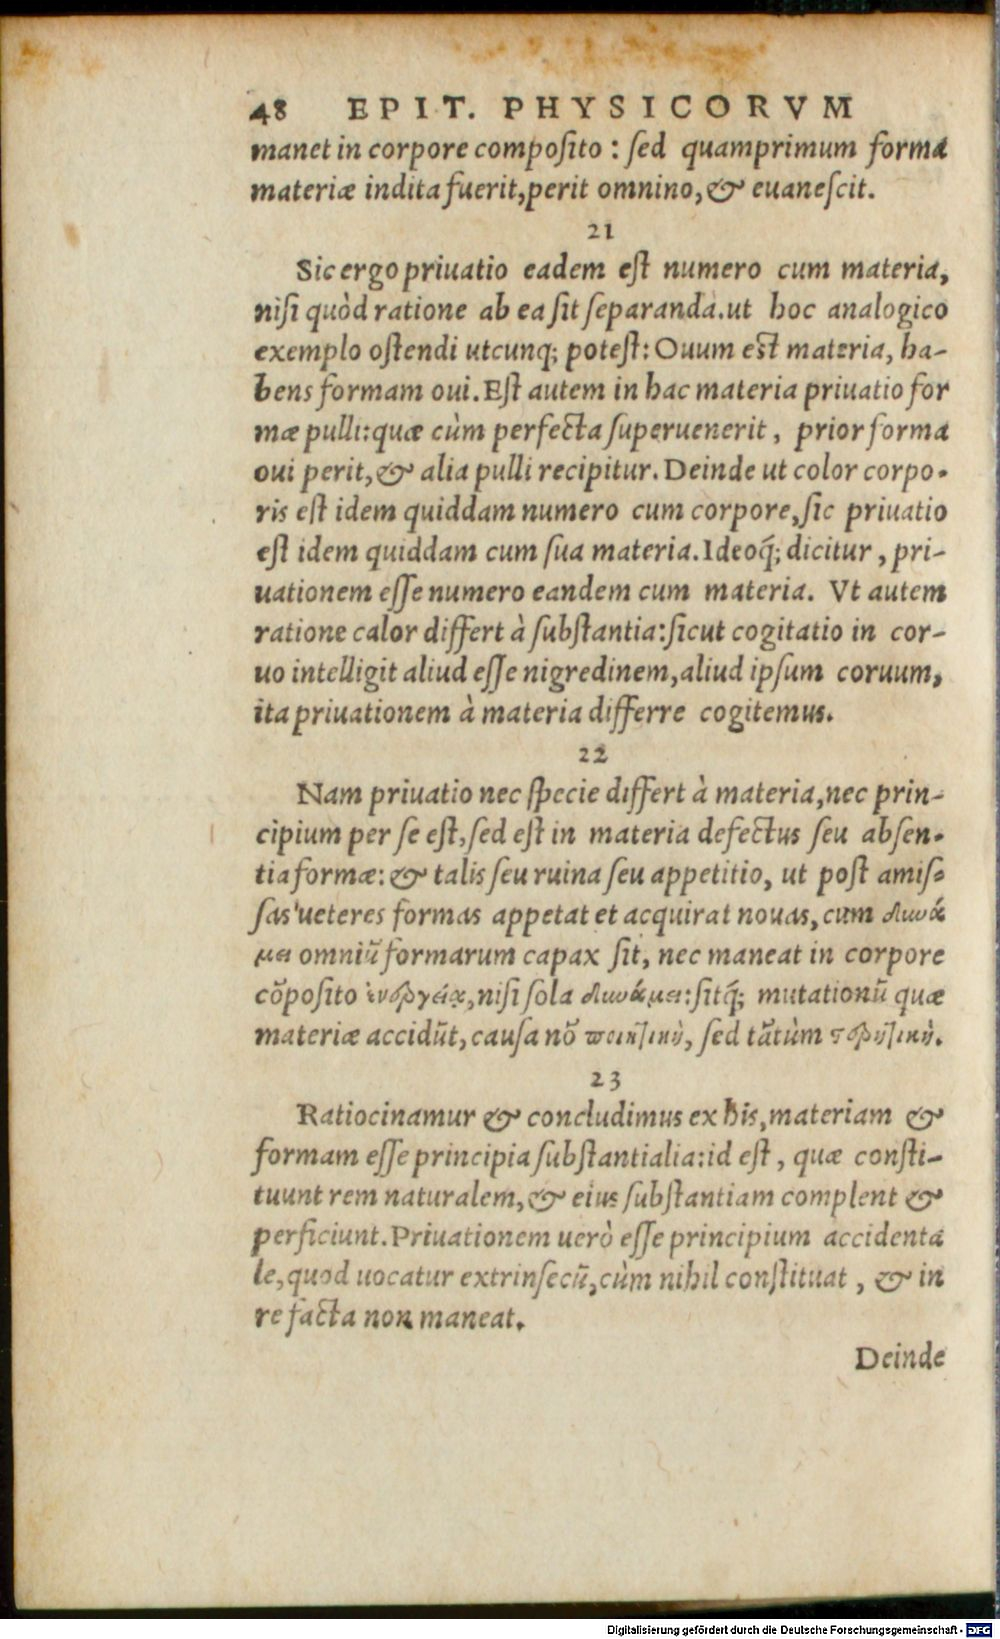 48 EPIT. PHYSICORVM
manet in corpore compoſito : ſed quamprimum forma
materiæ indita fuerit, perit omnino, & euaneſcit.
21
Sic ergo priuatio eadem eſt numero cum materia,
niſi quòd ratione ab ea ſit ſeparanda. ut hoc analogico
exemplo oſtendi utcunq; poteſt: Ouum eſt materia, ha-
bens formam oui. Eſt autem in hac materia priuatio for
mæ pulli: quæ cùm perfecta ſuperuenerit, prior forma
oui perit, & alia pulli recipitur. Deinde ut color corpo-
ris eſt idem quiddam numero cum corpore, ſic priuatio
eſt idem quiddam cum ſua materia. Ideoq́; dicitur, pri-
uationem eſſe numero eandem cum materia. Vt autem
ratione calor differt à ſubſtantia: ſicut cogitatio in cor-
uo intelligit aliud eſſe nigredinem, aliud ipſum coruum,
ita priuationem à materia differre cogitemus.
22
Nam priuatio nec ſpecie differt à materia, nec prin-
cipium per ſe eſt, ſed eſt in materia defectus ſeu abſen-
tia formæ: & talis ſeu ruina ſeu appetitio, ut poſt amiſ-
ſas ueteres formas appetat et acquirat nouas, cum δυνά
μει omniũ formarum capax ſit, nec maneat in corpore
cõpoſito ἐνεργείᾳ, niſi ſola δυνάμει: ſitq́; mutationũ quæ
materiæ accidũt, cauſa nõ ποιητικὴ, ſed tãtùm στερητικὴ.
23
Ratiocinamur & concludimus ex his, materiam &
formam eſſe principia ſubſtantialia: id eſt, quæ conſti-
tuunt rem naturalem, & eius ſubſtantiam complent &
perficiunt. Priuationem uerò eſſe principium accidenta
le, quod uocatur extrinſecũ, cùm nihil conſtituat, & in
re facta non maneat.
Deinde
Digitalisierung gefördert durch die Deutsche Forschungsgemeinschaft - DFG